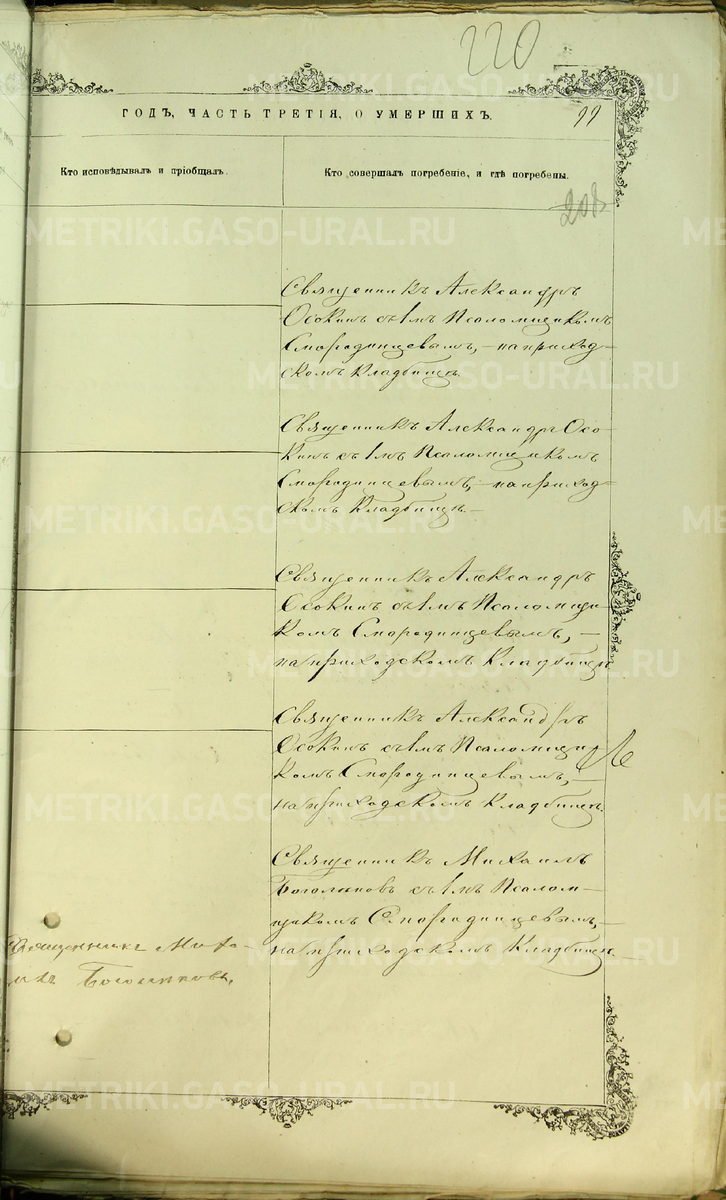 220
ГОДЪ, ЧАСТЬ ТРЕТІЯ, О УМЕРШИХЪ.
99
Кто исповѣдывалъ и пріобщалъ.
Кто совершалъ погребеніе, и гдѣ погребены.
208
Священникъ Александръ
Осокинъ съ 1мъ Псаломщикомъ
Смородинцевымъ, – на приход-
скомъ Кладбищѣ.
Священникъ Александръ Осо-
кинъ съ 1мъ Псаломщикомъ
Смородинцевымъ, – на приход-
скомъ Кладбищѣ. –
Священникъ Александръ
Осокинъ съ 1мъ Псаломщи-
комъ Смородинцевымъ, –
на приходскомъ Кладбищѣ
Священникъ Александръ
Осокинъ съ 1мъ Псаломщи-
комъ Смородинцевымъ, –
на приходскомъ Кладбищѣ.
Священникъ Михаилъ
съ 1мъ Псалом-
щикомъ Смородинцевымъ, –
на приходскомъ Кладбищѣ.
Священникъ Миха-
илъ
METRIKI.GASO-URAL.RU